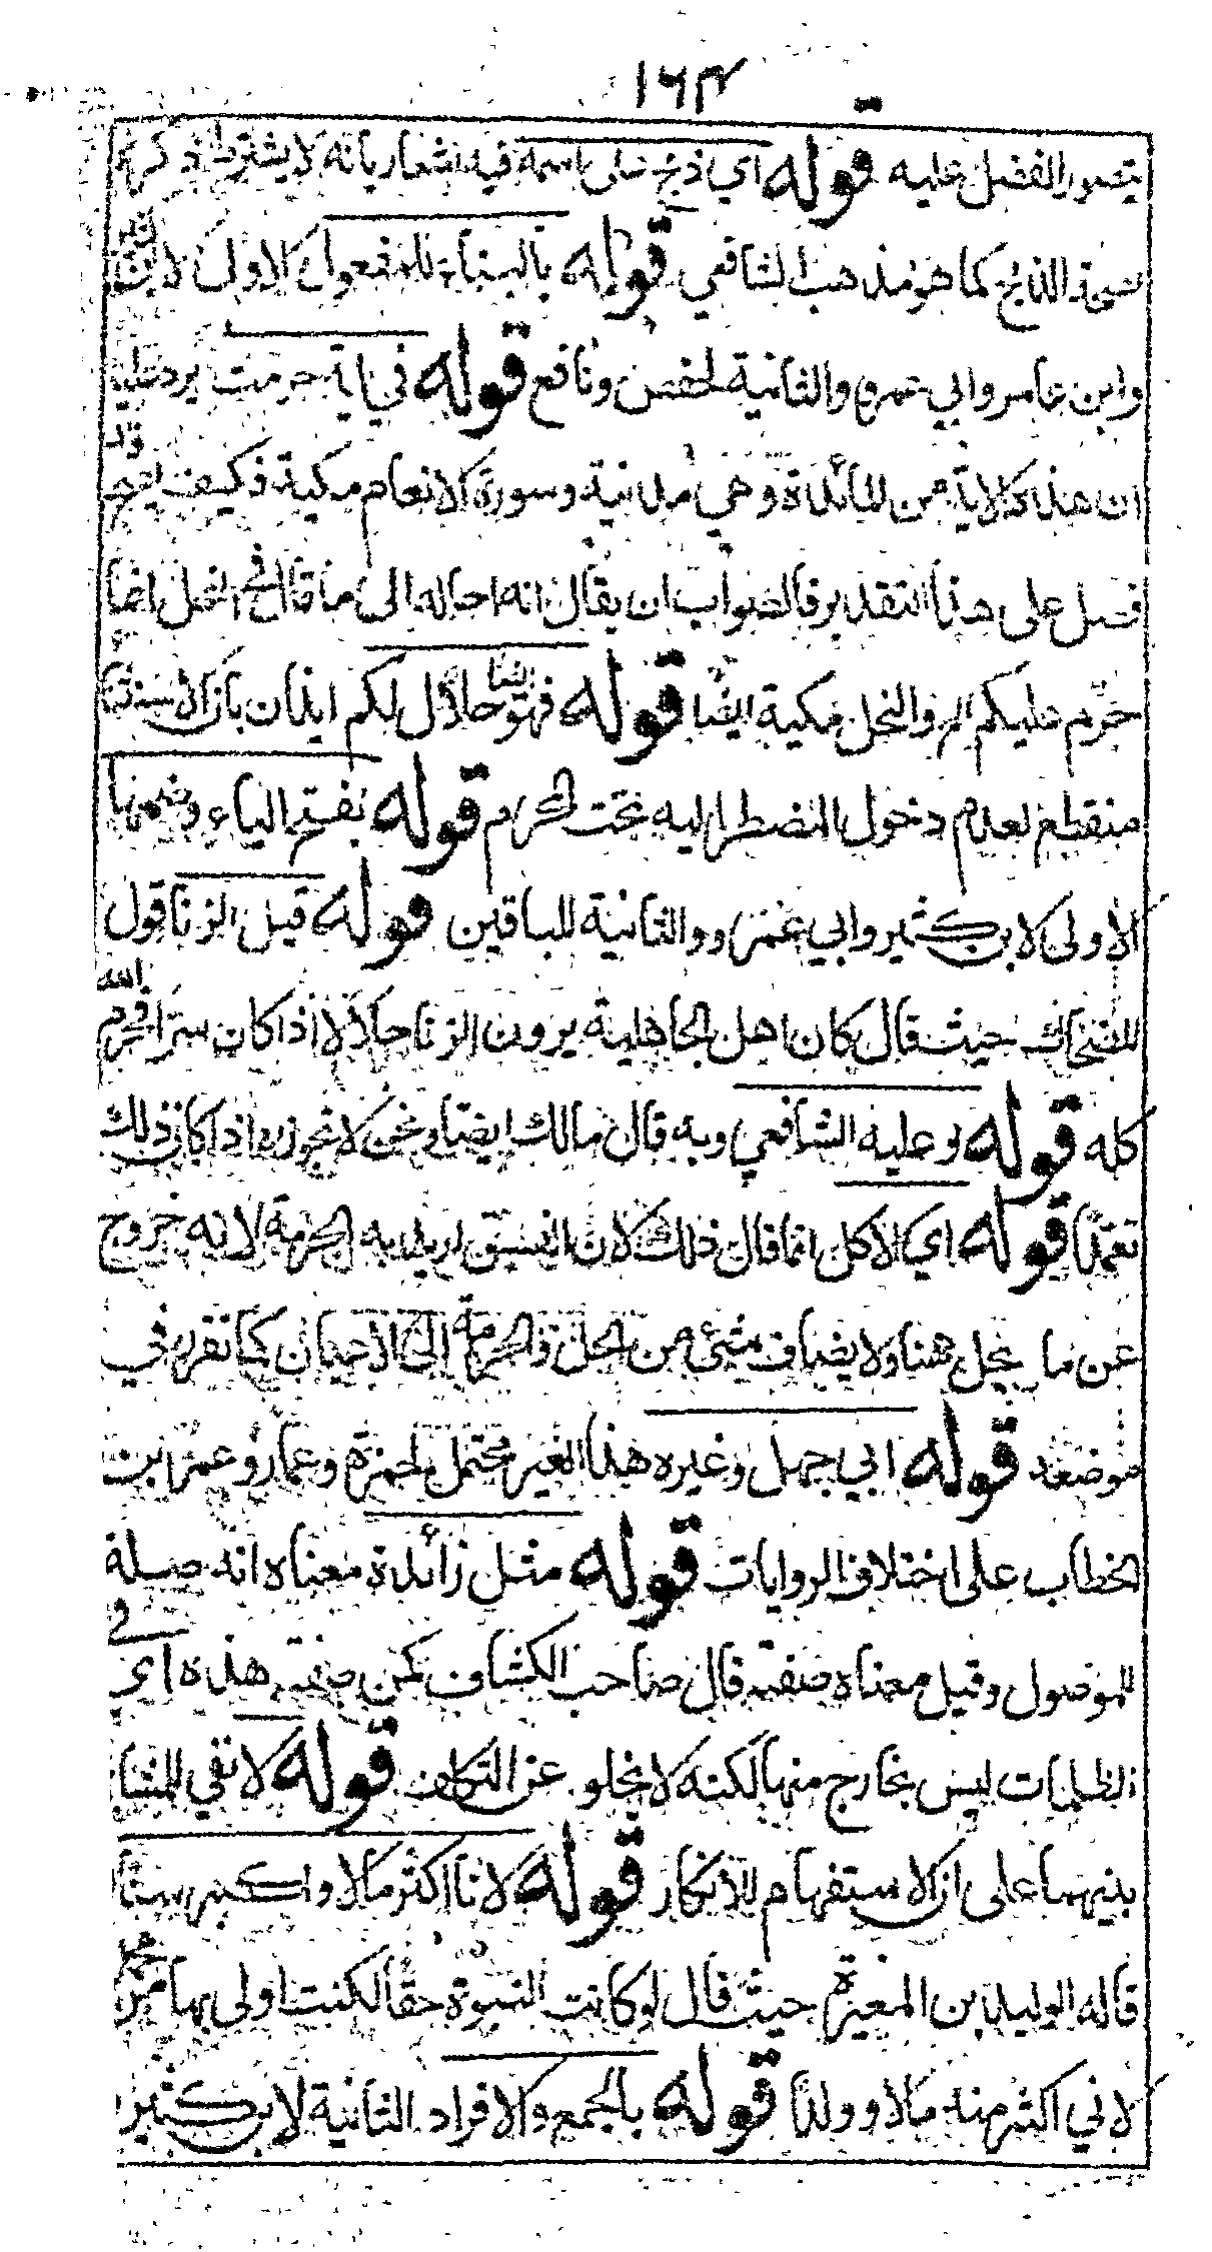 ١٦٣
يتصور الفضل عليه قوله اي ذبح على اسمه فيه اشعار بانه لا يشترط ذكر
الذابح كما هو مذهب الشافعي قوله بالبناء للمفعول الاول لابن كثير
وابن عامر وابي عمرو والثانية لحفص ونافع قوله في اية حرمت يرد عليه
ان هذه الاية من المائدة وهي مدنية وسورة الانعام مكية فكيف يصح وقد
فصل على هذا التقدير فالصواب ان يقال انه احاله الى ما في النحل انما
حرم عليكم الخ والنحل مكية ايضا قوله فهو ايضا حلال لكم ايذان بان الاستثناء
منقطع لعدم دخول المضطر اليه تحت المحرم قوله بفتح الياء وضمها
الاولى لابن كثير وابي عمرو والثانية للباقين قوله قيل الزنا قول
الضحاك حيث قال كان اهل الجاهلية يرون الزنا حلالا اذا كان سرا فحرم الله
كله قوله وعليه الشافعي وبه قال مالك ايضا ونحن لا نجوزه اذا كان ذلك
تعمدا قوله اي الاكل انما قال ذلك لان الفسق اريد به الحرمة لانه خروج
عن ما يحل ههنا ولا يضاف شئ من الحل والحرمة الى الاعيان كما تقرر في
موضعه قوله ابي جهل وغيره هذا الغير محتمل لحمزة وعمار وعمر ابن
الخطاب على اختلاف الروايات قوله مثل زائدة معناه انه صلة
للموصول وقيل معناه صفته قال صاحب الكشاف كمن صفته هذه اي في
الظلمات ليس بخارج منها لكنه لا يخلو عن التكلف قوله لا نفي للمشا
بينهما على ان الاستفهام للانكار قوله لانا اكثر مالا واكبر سنا
قاله الوليد بن المغيرة حيث قال لو كانت النبوة حقا لكنت اولى بها من محمد
لاني اكثر منه مالا وولدا قوله بالجمع والافراد الثانية لابن كثير